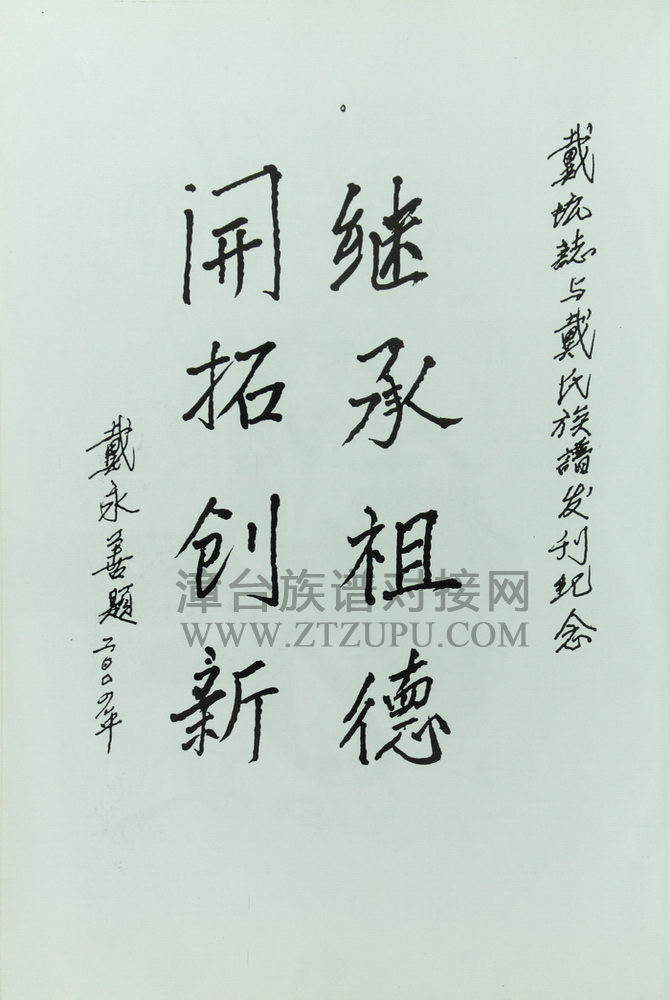 戴坑誌与戴氏族譜发刊纪念
继承祖德
开拓创新
戴永善题
漳台族谱对接网
WWW.ZTZUPU.COM